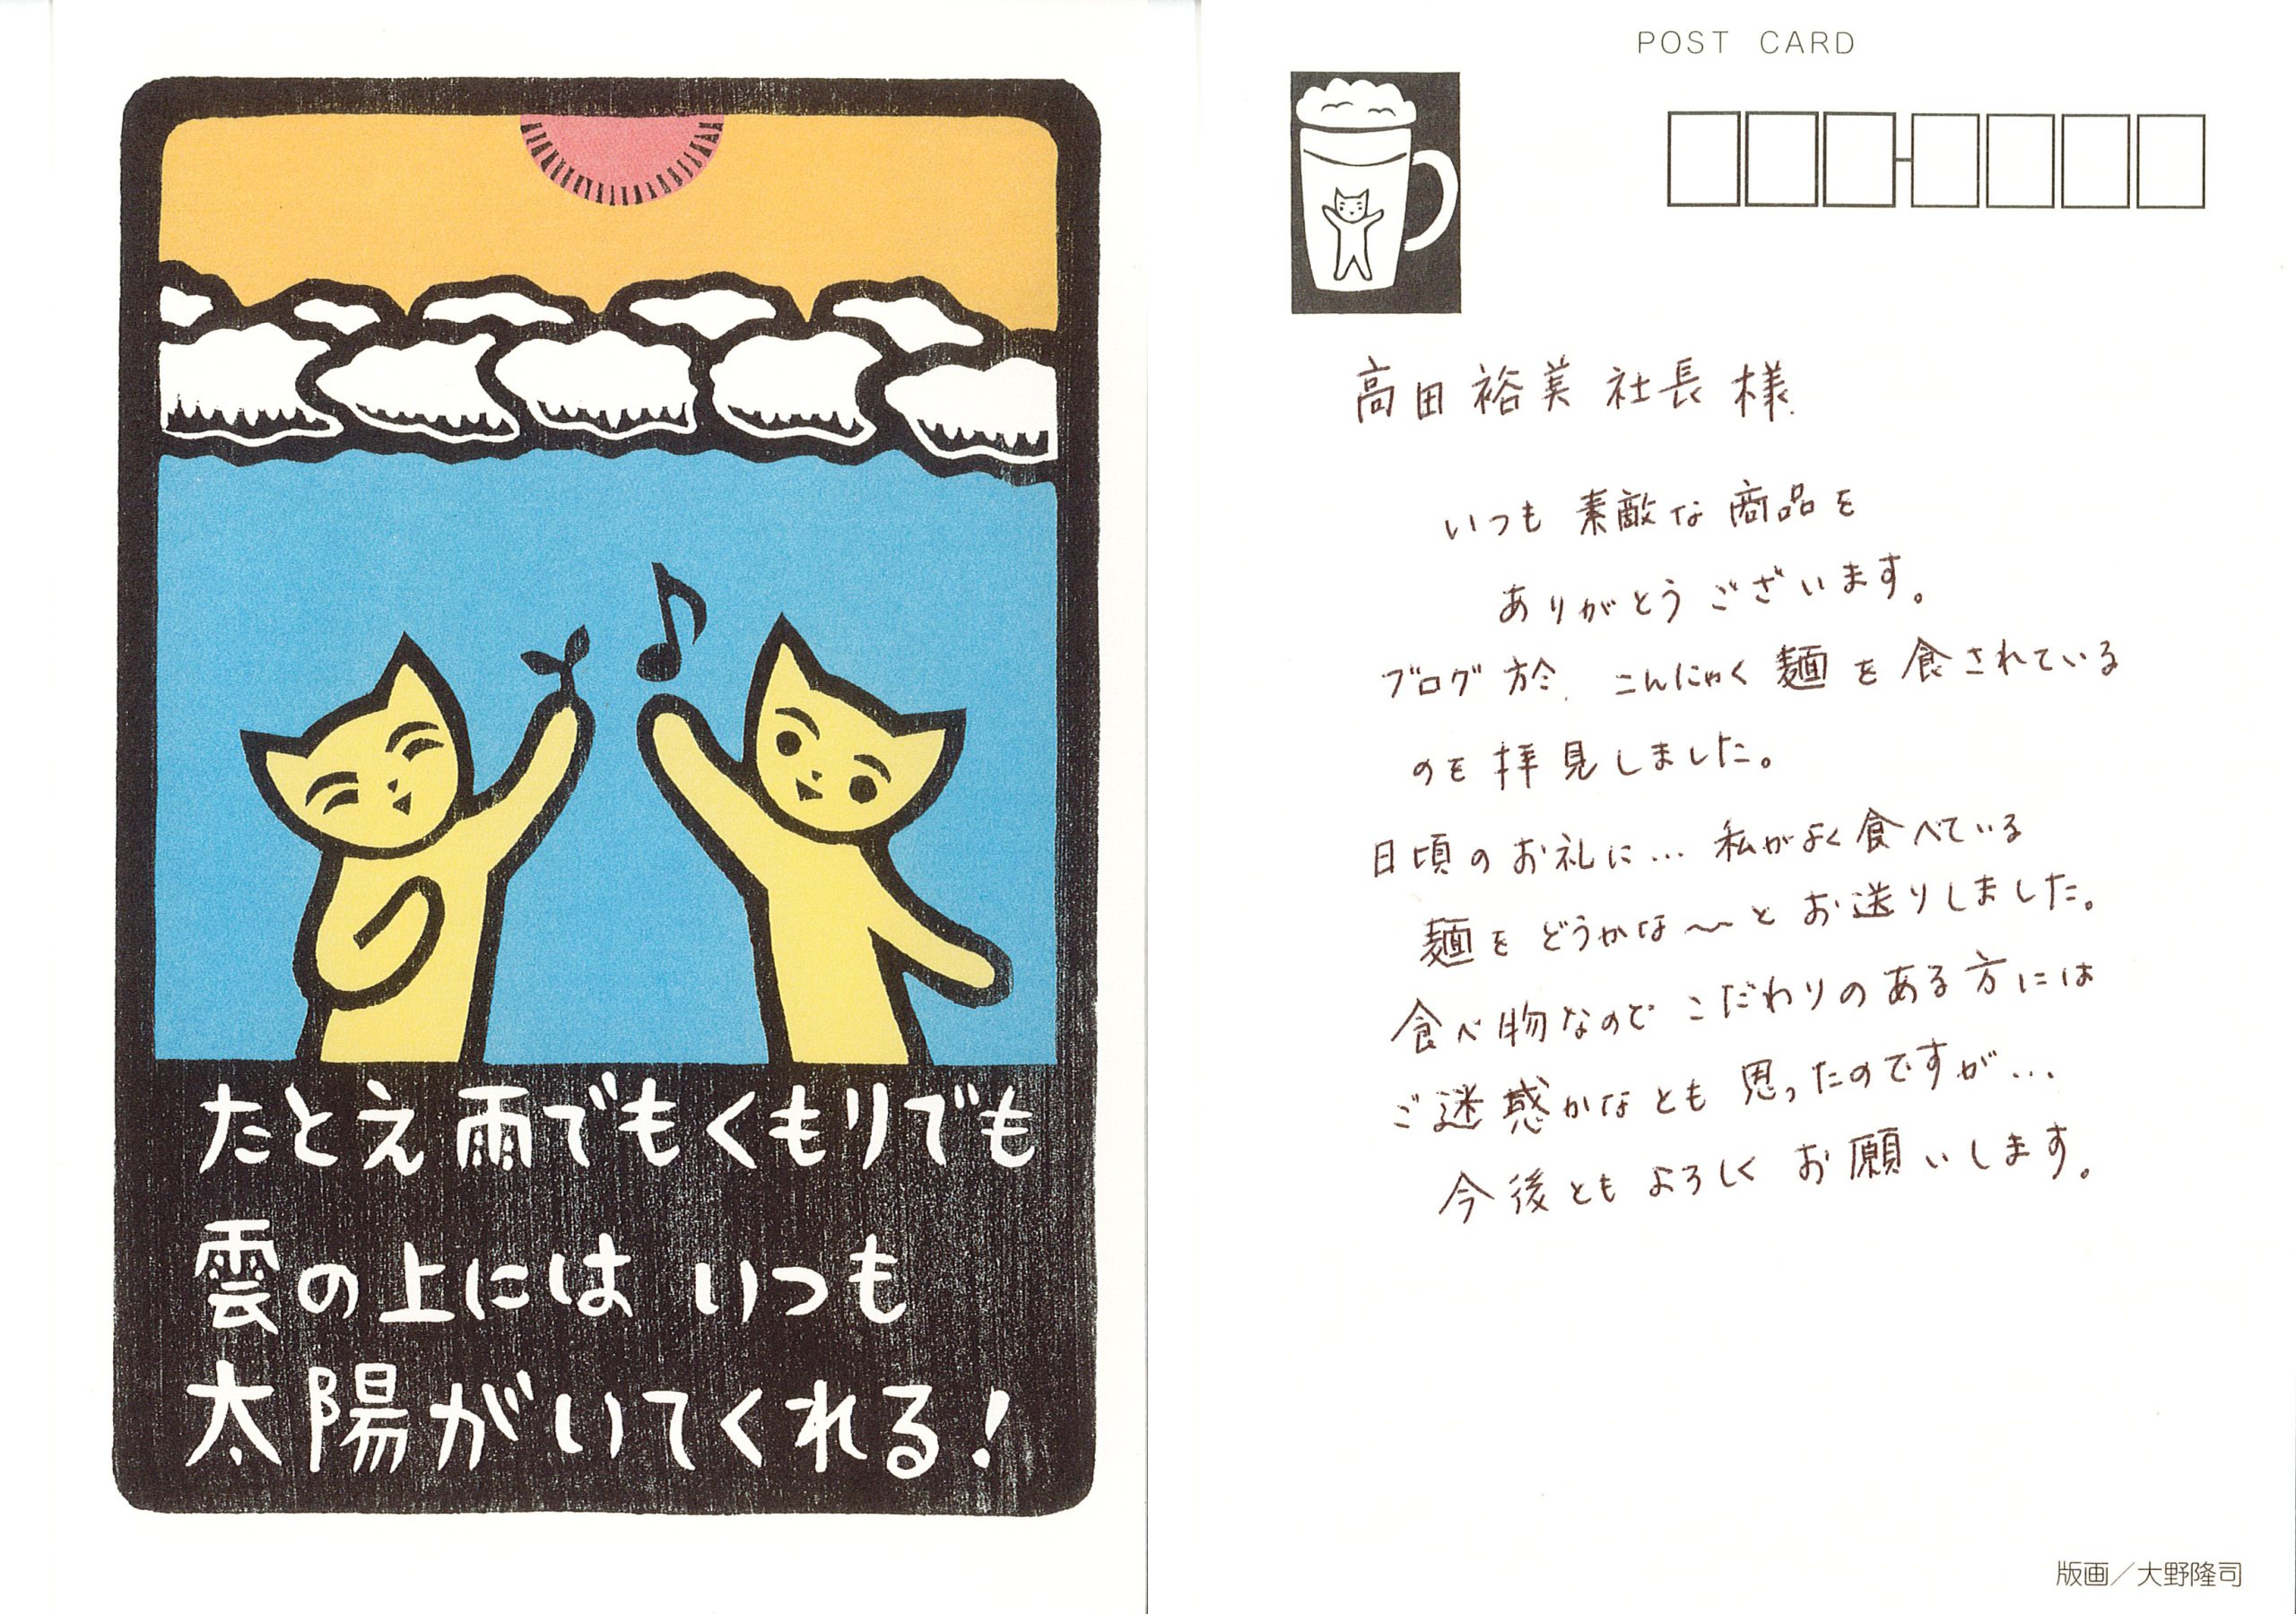 たとえ雨でもくもりでも
雲の上には いつも
太陽がいてくれる!
POST CARD
高田裕美社長様
いつも素敵な商品を
ありがとうございます。
ブログ こんにゃく麺を食されている
のを拝見しました。
日頃のお礼に…私がよく食べている
麺をどうかな〜とお送りしました。
食べ物なのでこだわりのある方には
ご迷惑かなとも思ったのですが…
今後ともよろしくお願いします。
版画／大野隆司